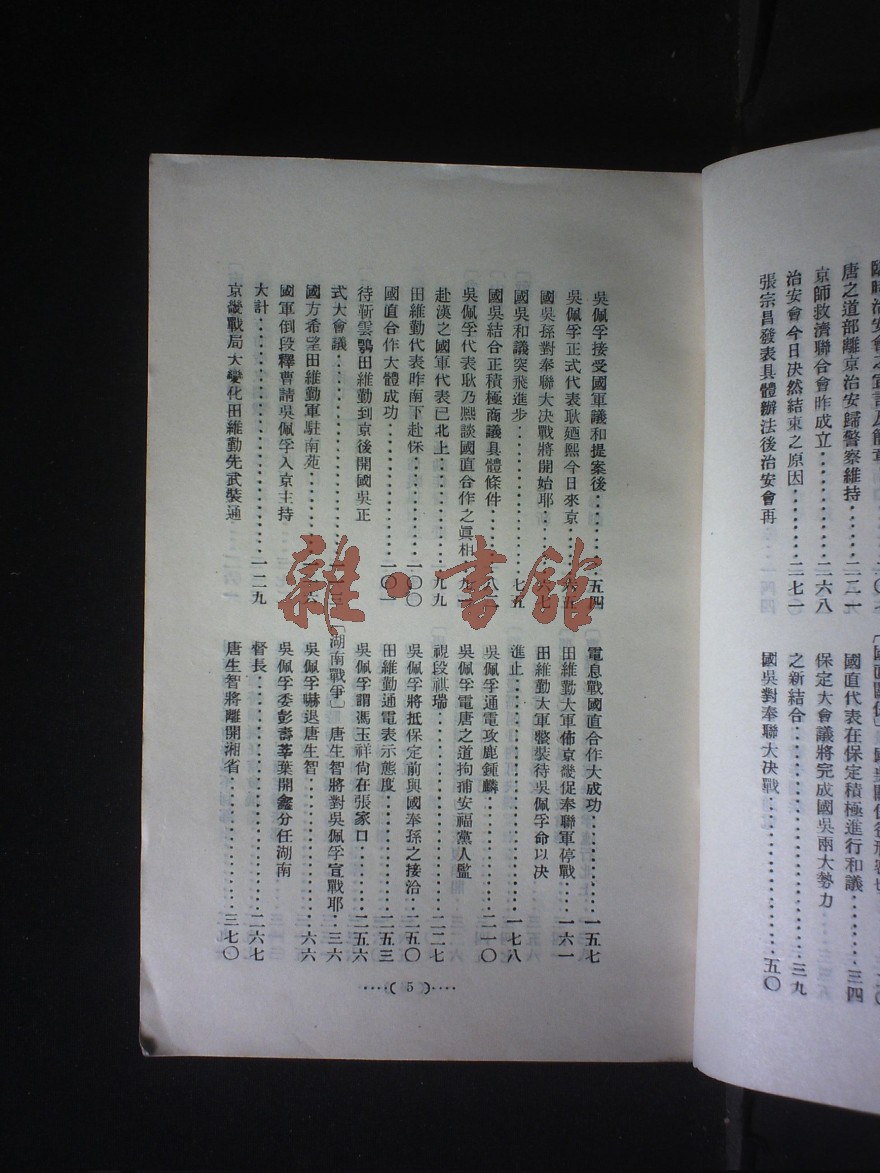 唐之道部離京治安歸警察維持……二二一
京師救濟聯合會昨成立……二六八
治安會今日決然結束之原因……二七一
張宗昌發表具體辦法後治安會再
國直代表在保定積極進行和議……三四
保定大會議將完成國吳兩大勢力
之新結合……三九
國吳對奉聯大決戰……五〇
吳佩孚接受國軍議和提案後……五四
吳佩孚正式代表耿廼熙今日來京……六五
國吳孫對奉聯大決戰將開始耶……六七
國吳和議突飛進步……七五
國吳結合正積極商議具體條件……八二
吳佩孚代表耿乃熙談國直合作之眞相……九一
赴漢之國軍代表已北上……九九
田維勤代表昨南下赴保……一〇〇
國直合作大體成功……一〇一
待靳雲鶚田維勤到京後開國吳正
式大會議……一一三
國方希望田維勤軍駐南苑
國軍倒段釋曹請吳佩孚入京主持
大計……一二九
京畿戰局大變化田維勤先武裝通
電息戰國直合作大成功……一五七
田維勤大軍佈京畿促奉聯軍停戰……一六一
田維勤大軍整裝待吳佩孚命以決
進止……一七八
吳佩孚通電攻鹿鍾麟……二一〇
吳佩孚電唐之道拘捕安福黨人監
視段祺瑞……二二七
吳佩孚將抵保定前與國奉孫之接洽……二五〇
田維勤通電表示態度……二五三
吳佩孚謂馮玉祥尙在張家口……二五六
〔湖南戰爭〕唐生智將對吳佩孚宣戰耶……三六
吳佩孚嚇退唐生智……六六
吳佩孚委彭壽莘葉開鑫分任湖南
督長……二六七
唐生智將離開湘省……三七〇
····( 5 )····
雜·書館